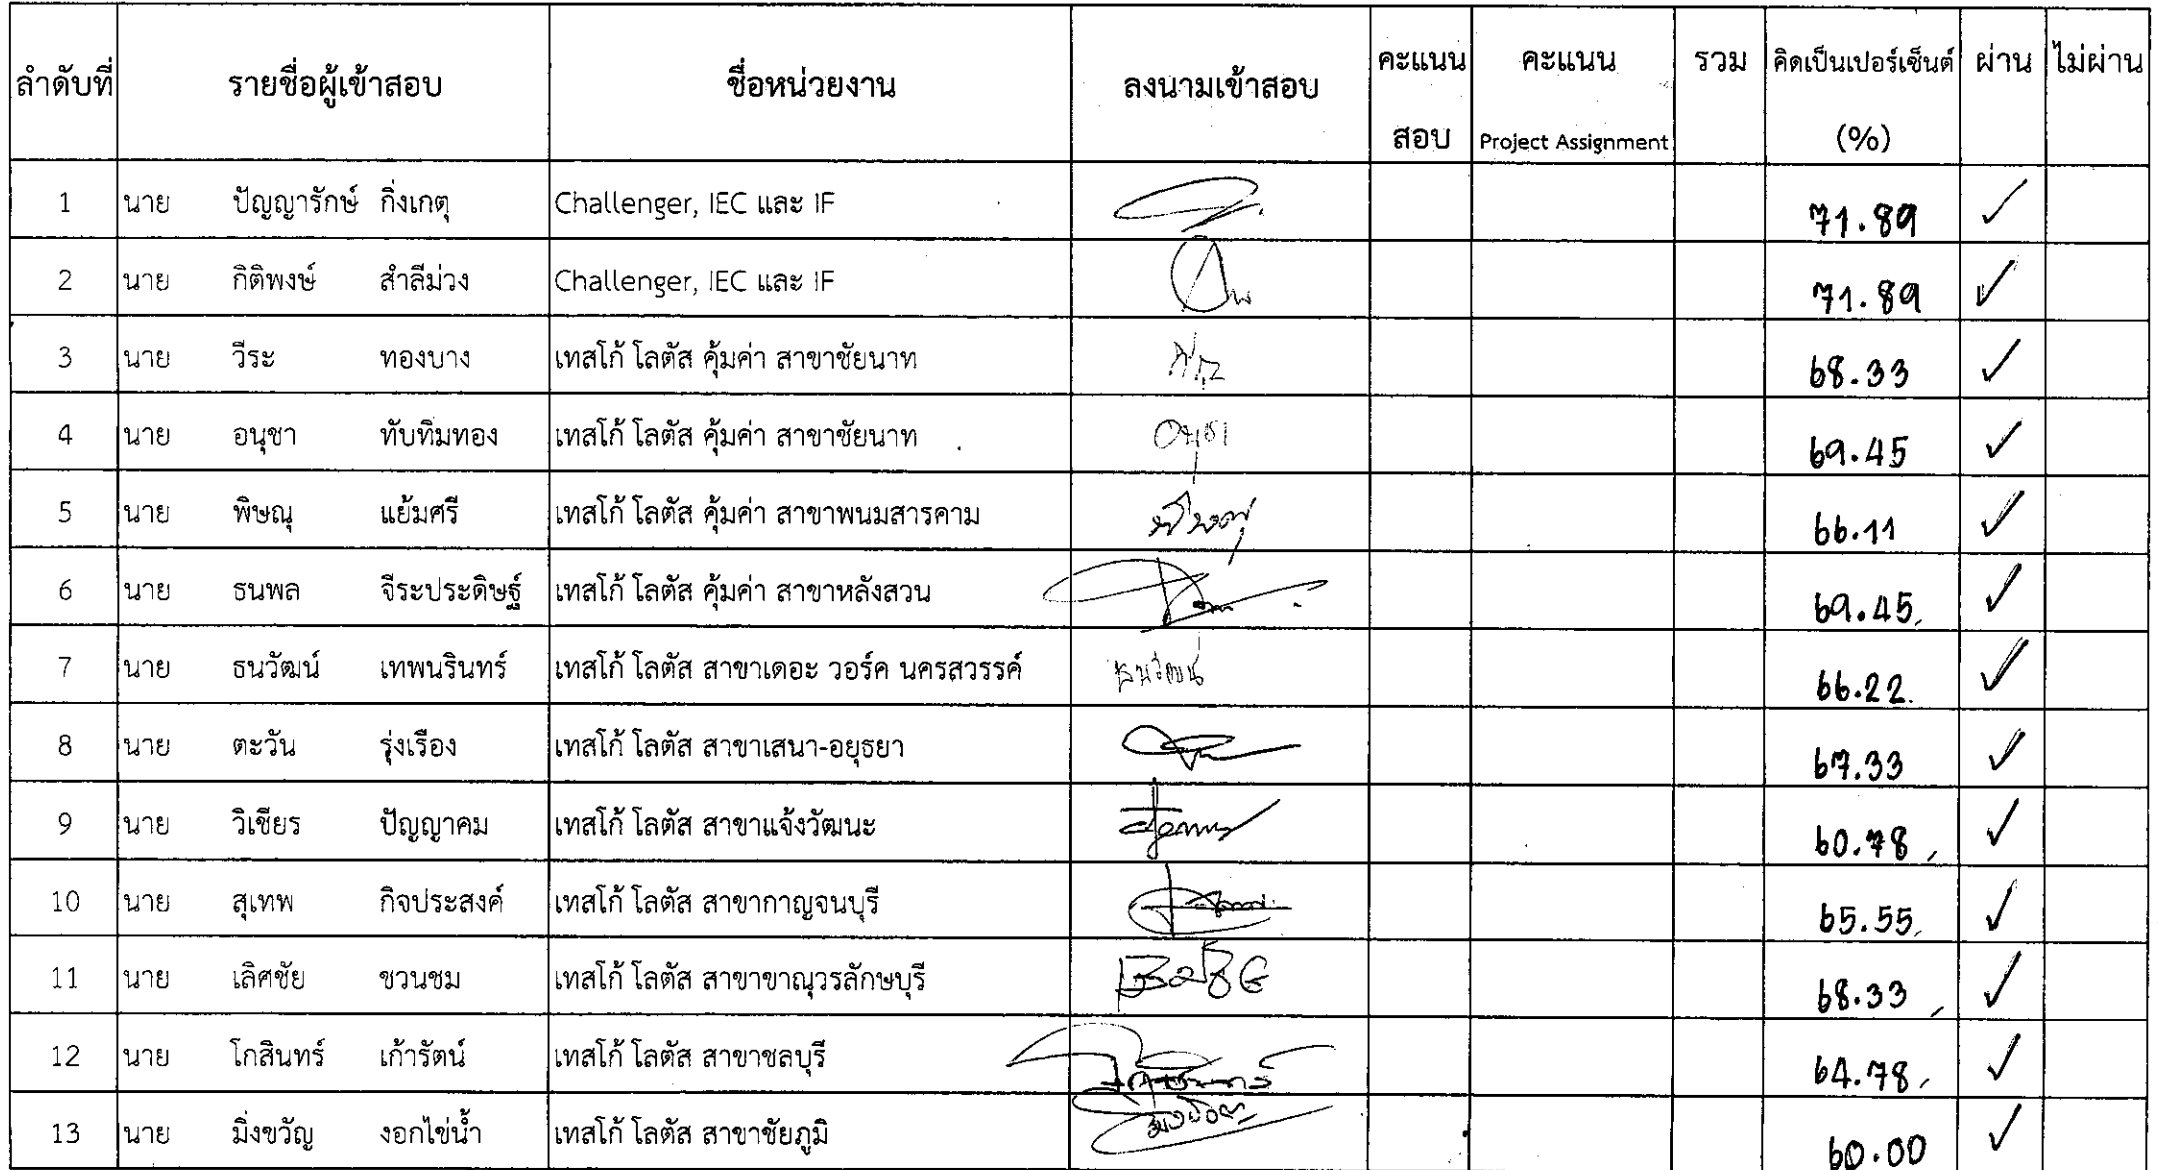 ลำดับที่ รายชื่อผู้เข้าสอบ ชื่อหน่วยงาน ลงนามเข้าสอบ คะแนน สอบ คะแนน Project Assignment รวม คิดเป็นเปอร์เซ็นต์ (%) ผ่าน ไม่ผ่าน
1 นาย ปัญญารักษ์ กิ่งเกตุ Challenger, IEC และ IF 71.89 ✓
2 นาย กิติพงษ์ สำลีม่วง Challenger, IEC และ IF 71.89 ✓
3 นาย วีระ ทองบาง เทสโก้ โลตัส คุ้มค่า สาขาชัยนาท 68.33 ✓
4 นาย อนุชา ทับทิมทอง เทสโก้ โลตัส คุ้มค่า สาขาชัยนาท อนุชา 69.45 ✓
5 นาย พิษณุ แย้มศรี เทสโก้ โลตัส คุ้มค่า สาขาพนมสารคาม พิษณุ 66.11 ✓
6 นาย ธนพล จีระประดิษฐ์ เทสโก้ โลตัส คุ้มค่า สาขาหลังสวน 69.45 ✓
7 นาย ธนวัฒน์ เทพนรินทร์ เทสโก้ โลตัส สาขาเดอะ วอร์ค นครสวรรค์ ธนวัฒน์ 66.22 ✓
8 นาย ตะวัน รุ่งเรือง เทสโก้ โลตัส สาขาเสนา-อยุธยา 67.33 ✓
9 นาย วิเชียร ปัญญาคม เทสโก้ โลตัส สาขาแจ้งวัฒนะ 60.78 ✓
10 นาย สุเทพ กิจประสงค์ เทสโก้ โลตัส สาขากาญจนบุรี 65.55 ✓
11 นาย เลิศชัย ชวนชม เทสโก้ โลตัส สาขาขาณุวรลักษบุรี 68.33 ✓
12 นาย โกสินทร์ เก้ารัตน์ เทสโก้ โลตัส สาขาชลบุรี 64.78 ✓
13 นาย มิ่งขวัญ งอกไข่น้ำ เทสโก้ โลตัส สาขาชัยภูมิ 60.00 ✓